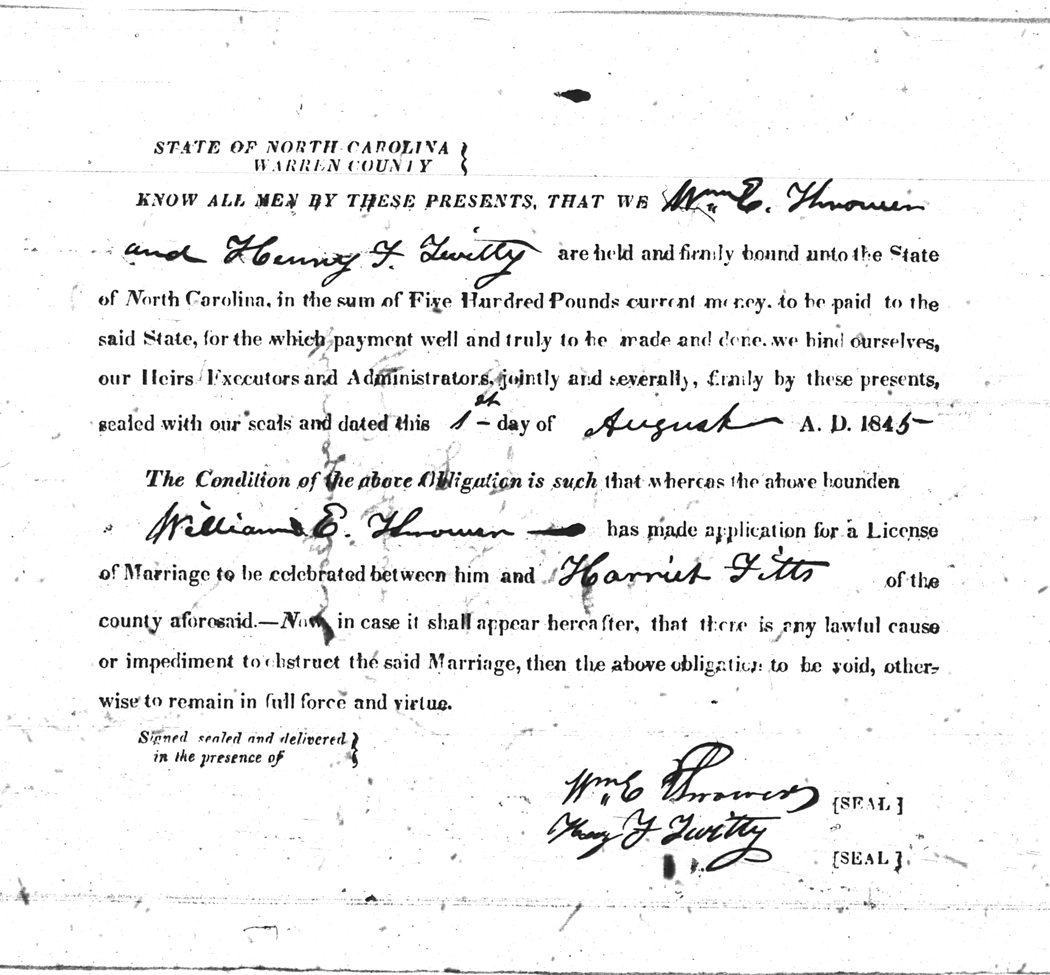 STATE OF NORTH CAROLINA
WARREN COUNTY
KNOW ALL MEN BY THESE PRESENTS, THAT WE Wm E. Thrower
and Henry F. Twitty are held and firmly bound unto the State
of North Carolina, in the sum of Five Hundred Pounds current money, to be paid to the
said State, for the which payment well and truly to be made and done, we bind ourselves,
our Heirs Executors and Administrators, jointly and severally, firmly by these presents,
sealed with our seals and dated this 1st day of August A. D. 1845
The Condition of the above Obligation is such that whereas the above bounden
William E. Thrower has made application for a License
of Marriage to be celebrated between him and Harriet Fitts of the
county aforesaid.—Now, in case it shall appear hereafter, that there is any lawful cause
or impediment to obstruct the said Marriage, then the above obligation to be void, other-
wise to remain in full force and virtue.
Signed sealed and delivered
in the presence of
Wm E Thrower [SEAL]
Henry F Twitty
[SEAL]